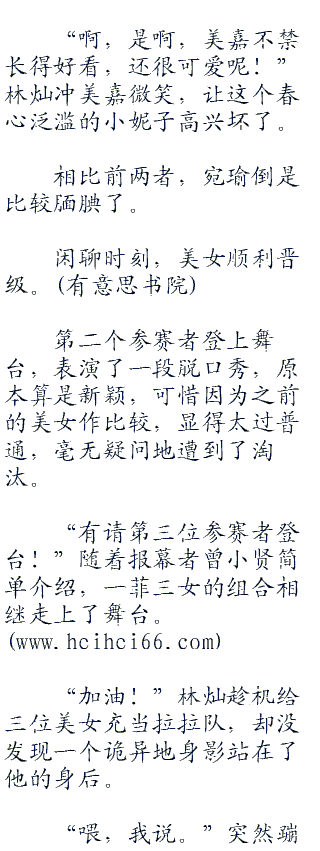 “啊，是啊，美嘉不禁
长得好看，还很可爱呢！”
林灿冲美嘉微笑，让这个春
心泛滥的小妮子高兴坏了。
相比前两者，宛瑜倒是
比较腼腆了。
闲聊时刻，美女顺利晋
级。(有意思书院)
第二个参赛者登上舞
台，表演了一段脱口秀，原
本算是新颖，可惜因为之前
的美女作比较，显得太过普
通，毫无疑问地遭到了淘
汰。
“有请第三位参赛者登
台！”随着报幕者曾小贤简
单介绍，一菲三女的组合相
继走上了舞台。
(www.hcihci66.com)
“加油！”林灿趁机给
三位美女充当拉拉队，却没
发现一个诡异地身影站在了
他的身后。
“喂，我说。”突然蹦